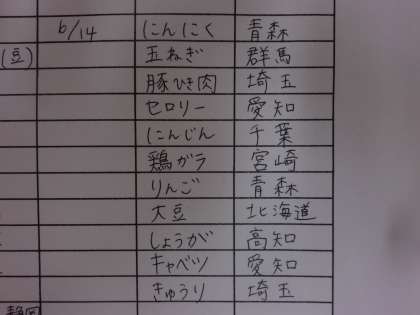 6/14 にんにく 青森
(豆) 玉ねぎ 群馬
豚ひき肉 埼玉
セロリー 愛知
にんじん 千葉
鶏ガラ 宮崎
りんご 青森
大豆 北海道
しょうが 高知
キャベツ 愛知
きゅうり 埼玉
静岡